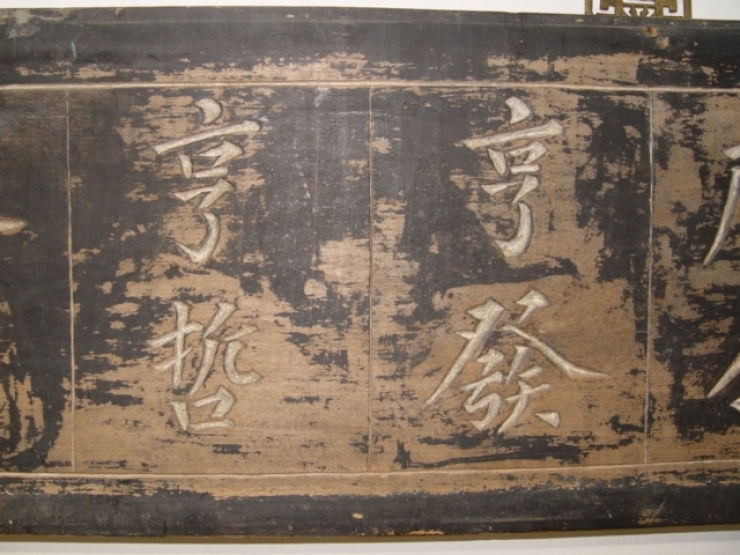 亨發
亨哲